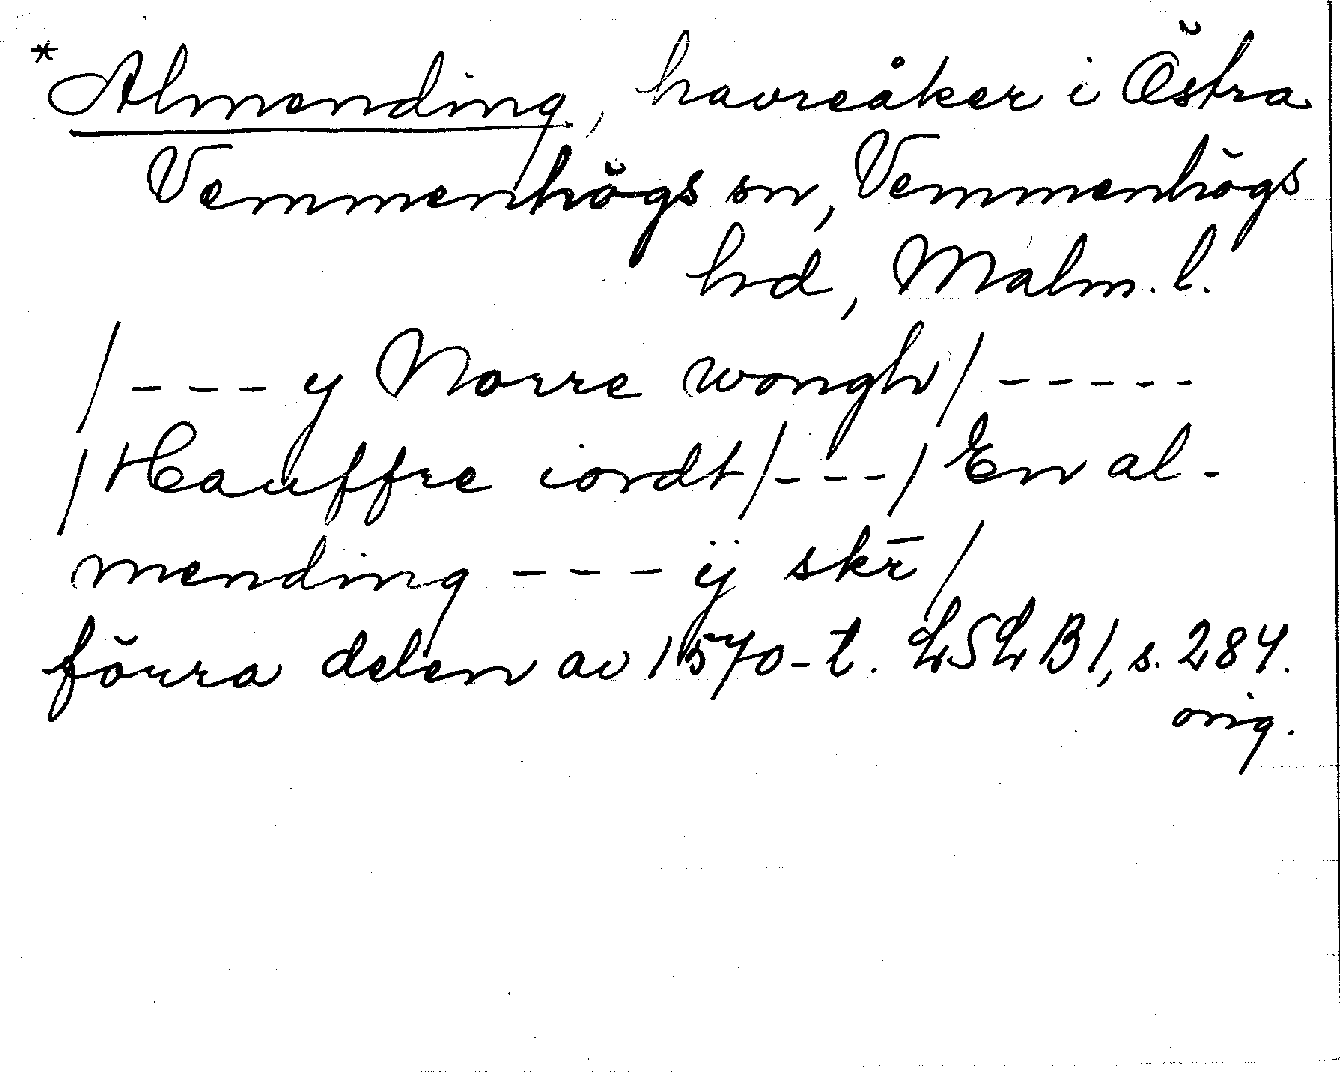 *Almending, havreåker i Östra
Vemmenhögs sn, Vemmenhögs
hd, Malm. l.
/---y Norre wongh/-----
/Hauffre iordt/---/En al-
mending---ij skr̄/
förra delen av 1570-t. LSLB1, s. 284.
orig.